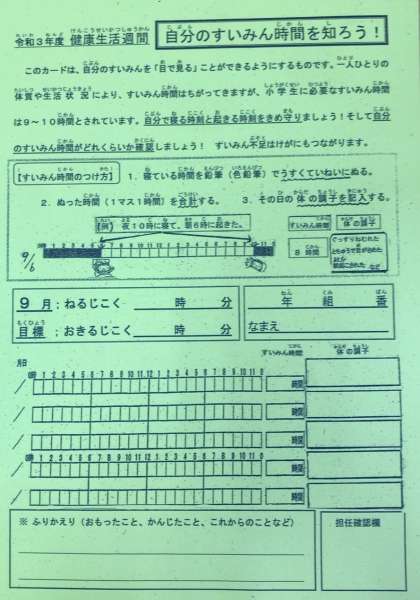 令和3年度 健康生活週間 自分のすいみん時間を知ろう！
このカードは、自分のすいみんを「目で見る」ことができるようにするものです。一人ひとりの
体質や生活状況により、すいみん時間はちがってきますが、小学生に必要なすいみん時間
は9～10時間とされています。自分で寝る時刻と起きる時刻をきめ守りましょう！そして自分
のすいみん時間がどれくらいか確認しましょう！ すいみん不足はけがにもつながります。
【すいみん時間のつけ方】 1．寝ている時間を鉛筆（色鉛筆）でうすくていねいにぬる。
2．ぬった時間（1マス1時間）を合計する。 3．その日の体の調子を記入する。
【例】夜10時に寝て、朝6時に起きた。 すいみん時間 体の調子
9/6 8時間 ぐっすりねむれた
9月；ねるじこく 時 分
目標；おきるじこく 時 分
年 組 番
なまえ
月日 すいみん時間 体の調子
0時 1 2 3 4 5 6 7 8 9 10 11 12 1 2 3 4 5 6 7 8 9 10 11 0
/ 時間
/ 時間
/ 時間
0時 1 2 3 4 5 6 7 8 9 10 11 12 1 2 3 4 5 6 7 8 9 10 11 0
/ 時間
/ 時間
※ ふりかえり（おもったこと、かんじたこと、これからのことなど）
担任確認欄